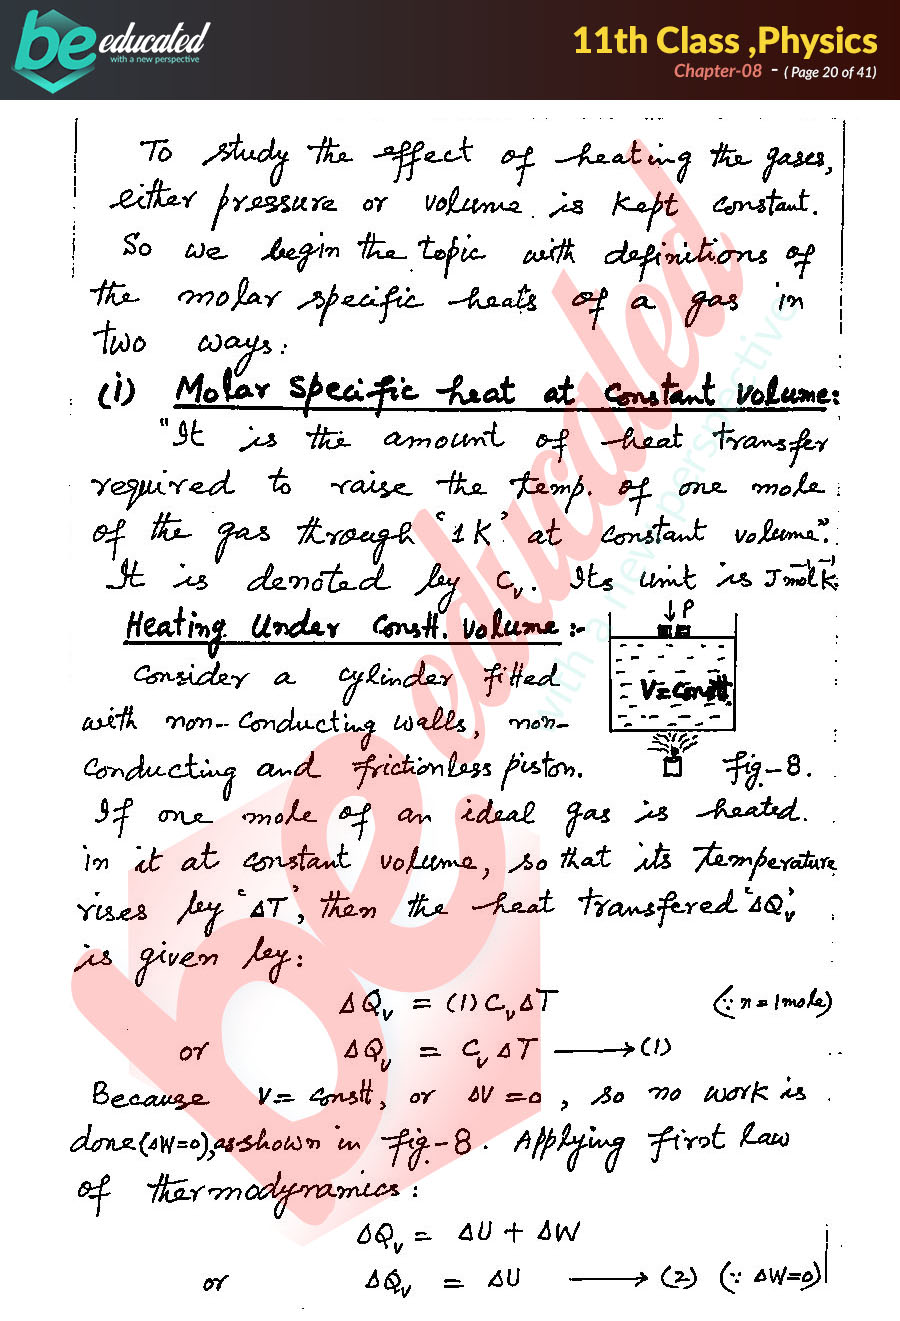 be educated
with a new perspective
11th Class ,Physics
Chapter-08 - ( Page 20 of 41)
To study the effect of heating the gases,
either pressure or volume is kept constant.
So we begin the topic with definitions of
the molar specific heats of a gas in
two ways:
(i) Molar Specific heat at constant volume:
"It is the amount of heat transfer
required to raise the temp. of one mole
of the gas through '1K' at constant volume".
It is denoted by Cᵥ. Its unit is J mol⁻¹ K⁻¹.
Heating Under Constt. Volume :-
↓P
Consider a cylinder fitted
V=constt.
with non-conducting walls, non-
conducting and frictionless piston.
fig-8.
If one mole of an ideal gas is heated
in it at constant volume, so that its temperature
rises by 'ΔT', then the heat transfered 'ΔQᵥ'
is given by:
ΔQᵥ = (1) Cᵥ ΔT (∵ n = 1mole)
or ΔQᵥ = Cᵥ ΔT ⟶ (1)
Because V = constt, or ΔV = 0, so no work is
done (ΔW=0), as shown in fig-8. Applying first law
of thermodynamics:
ΔQᵥ = ΔU + ΔW
or ΔQᵥ = ΔU ⟶ (2) (∵ ΔW=0)
be educated
with a new perspective